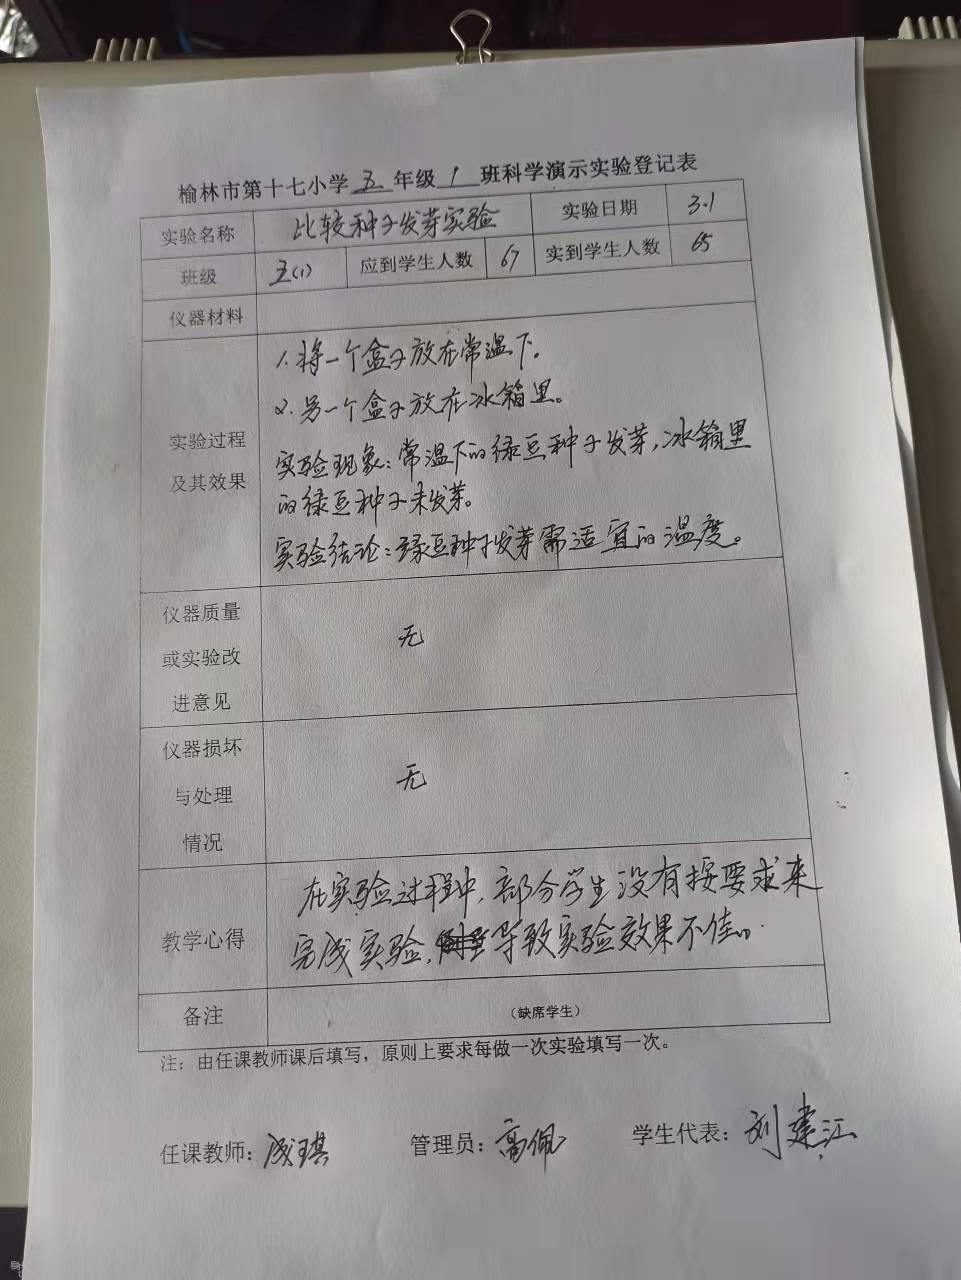 榆林市第十七小学五年级1班科学演示实验登记表
实验名称 比较种子发芽实验 实验日期 3.1
班级 五(1) 应到学生人数 67 实到学生人数 65
仪器材料
实验过程
及其效果
1.将一个盒子放在常温下。
2.另一个盒子放在冰箱里。
实验现象:常温下的绿豆种子发芽,冰箱里
的绿豆种子未发芽。
实验结论:绿豆种子发芽需适宜的温度。
仪器质量
或实验改
进意见
无
仪器损坏
与处理
情况
无
教学心得
在实验过程中,部分学生没有按要求来
完成实验,导致实验效果不佳。
备注 (缺席学生)
注:由任课教师课后填写,原则上要求每做一次实验填写一次。
任课教师:成琪 管理员:高佩 学生代表:刘建江